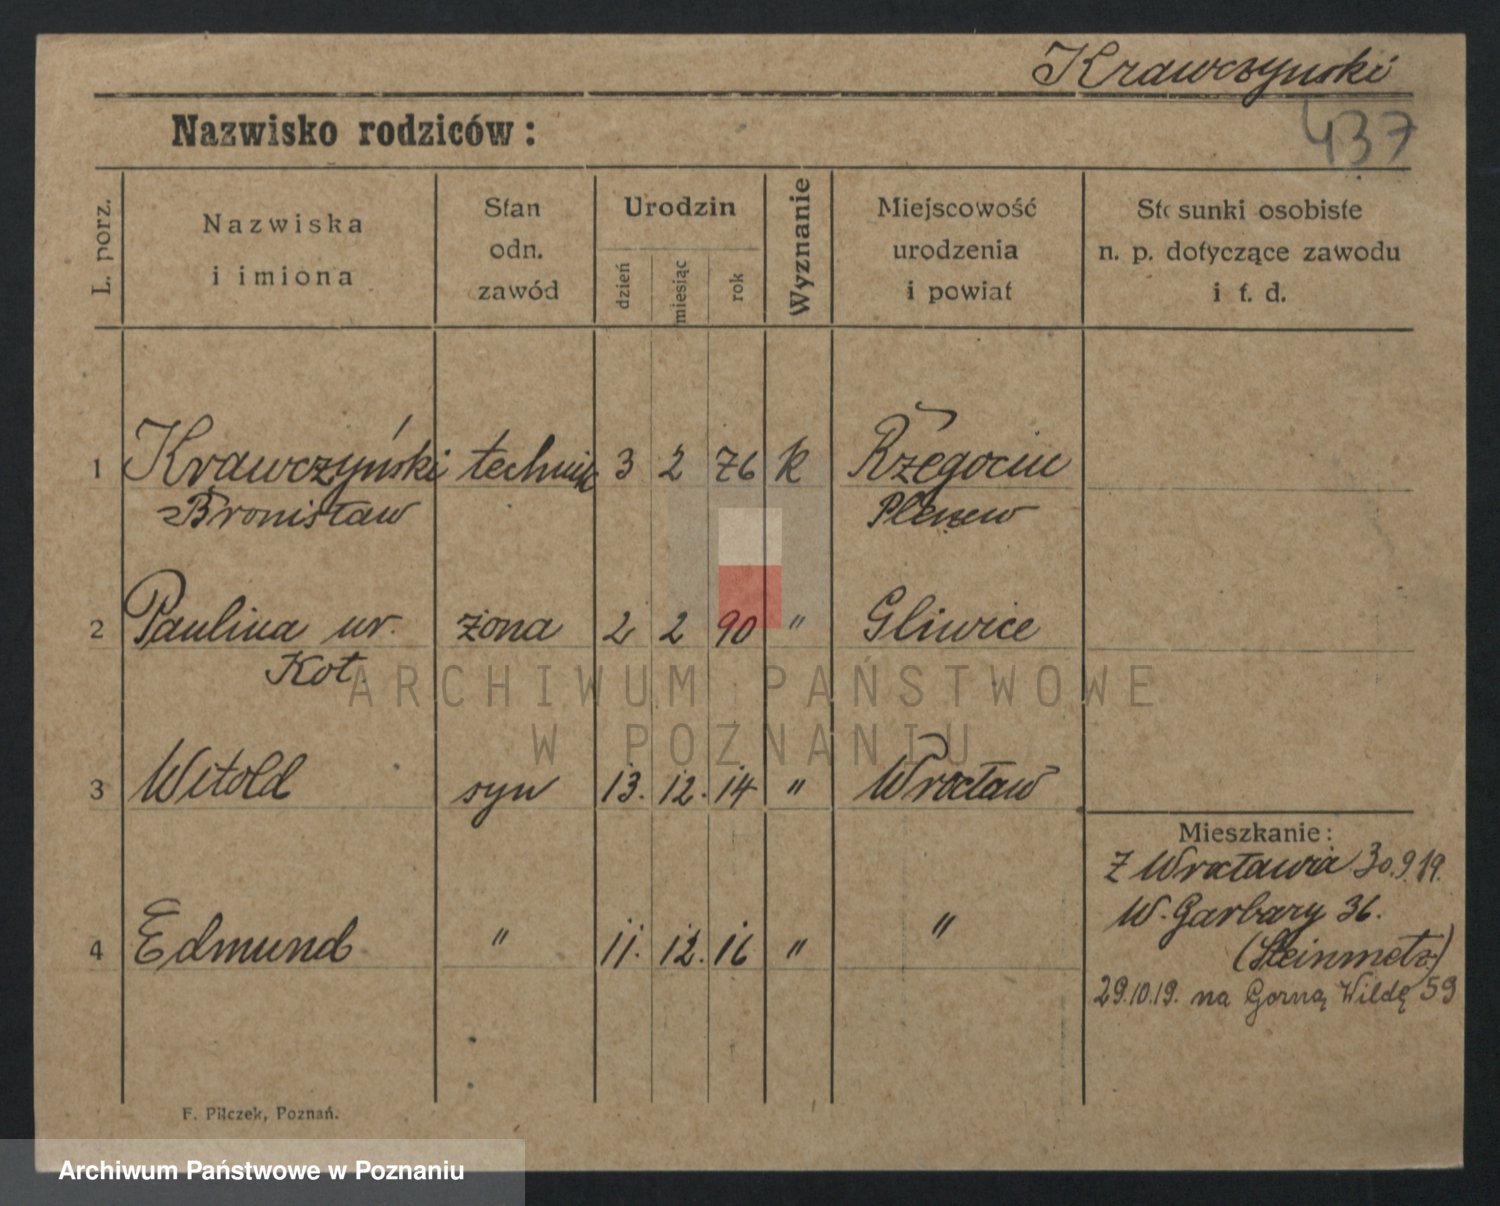 Krawczynski
437
Nazwisko rodziców:
L. porz.
Nazwiska
i imiona
Stan
odn.
zawód
Urodzin
dzień
miesiąc
rok
Wyznanie
Miejscowość
urodzenia
i powiat
Stosunki osobiste
n. p. dotyczące zawodu
i t. d.
1 Krawczyński technik 3 2 76 k Rzegocin
Bronisław Pleszew
2 Paulina ur. żona 2 2 90 " Gliwice
Kot.
ARCHIWUM PAŃSTWOWE
W POZNANIU
3 Witold syn 13. 12. 14 " Wrocław
Mieszkanie:
Z Wrocławia 30.9.19.
W. Garbary 36.
4 Edmund " 11. 12. 16 " "
(Steinmetz)
29.10.19. na Gorną Wildę 59
F. Pilczek, Poznań.
Archiwum Państwowe w Poznaniu